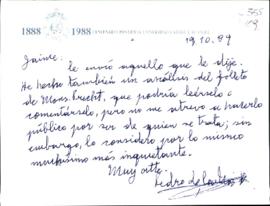 1888 1988 CENTENARIO PONTIFICIA UNIVERSIDAD CATOLICA DE CHILE
19.10.89
Jaime:
le envío aquello que le dije.
He hecho también un análisis del folleto
de Mons. Hrecht, que podría leérselo o
comentárselo, pero no me atrevo a hacerlo
público por ser de quien se trata; sin
embargo, lo considero por lo mismo
muchísimo más inquietante.
Muy atte.
Pedro de la